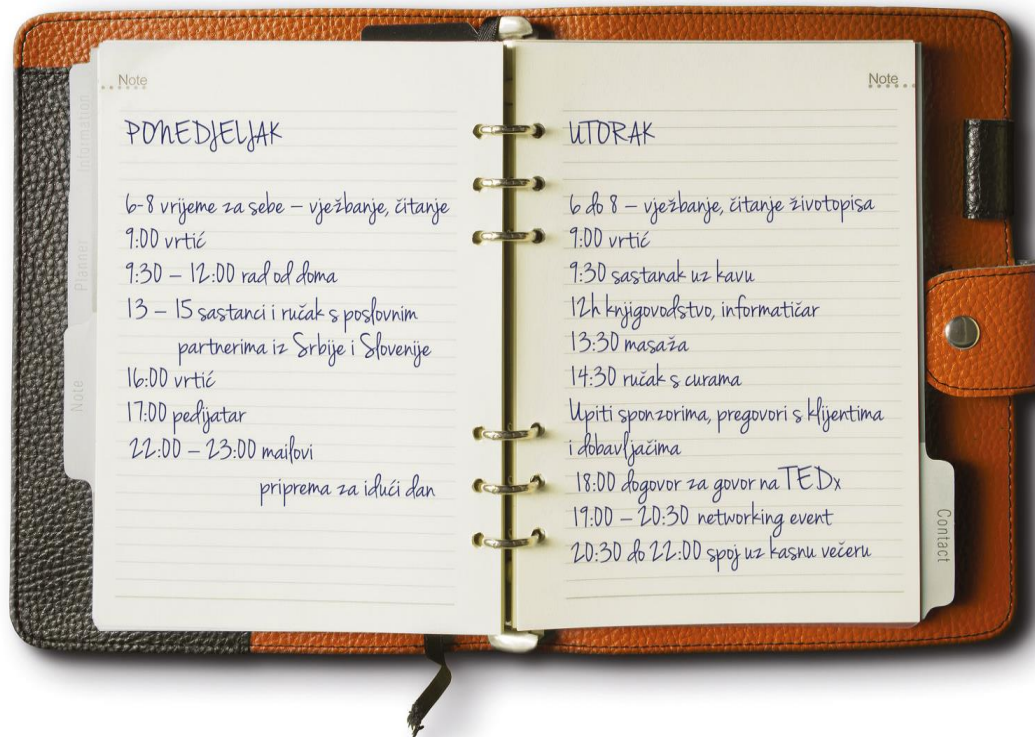 Note
PONEDJELJAK
6-8 vrijeme za sebe – vježbanje, čitanje
9:00 vrtić
9:30 – 12:00 rad od doma
13 – 15 sastanci i ručak s poslovnim
partnerima iz Srbije i Slovenije
16:00 vrtić
17:00 pedijatar
22:00 – 23:00 mailovi
priprema za idući dan
Information
Planner
Note
Note
UTORAK
6 do 8 – vježbanje, čitanje životopisa
9:00 vrtić
9:30 sastanak uz kavu
12h knjigovodstvo, informatičar
13:30 masaža
14:30 ručak s curama
Upiti sponzorima, pregovori s klijentima
i dobavljačima
18:00 dogovor za govor na TEDx
19:00 – 20:30 networking event
20:30 do 22:00 spoj uz kasnu večeru
Contact